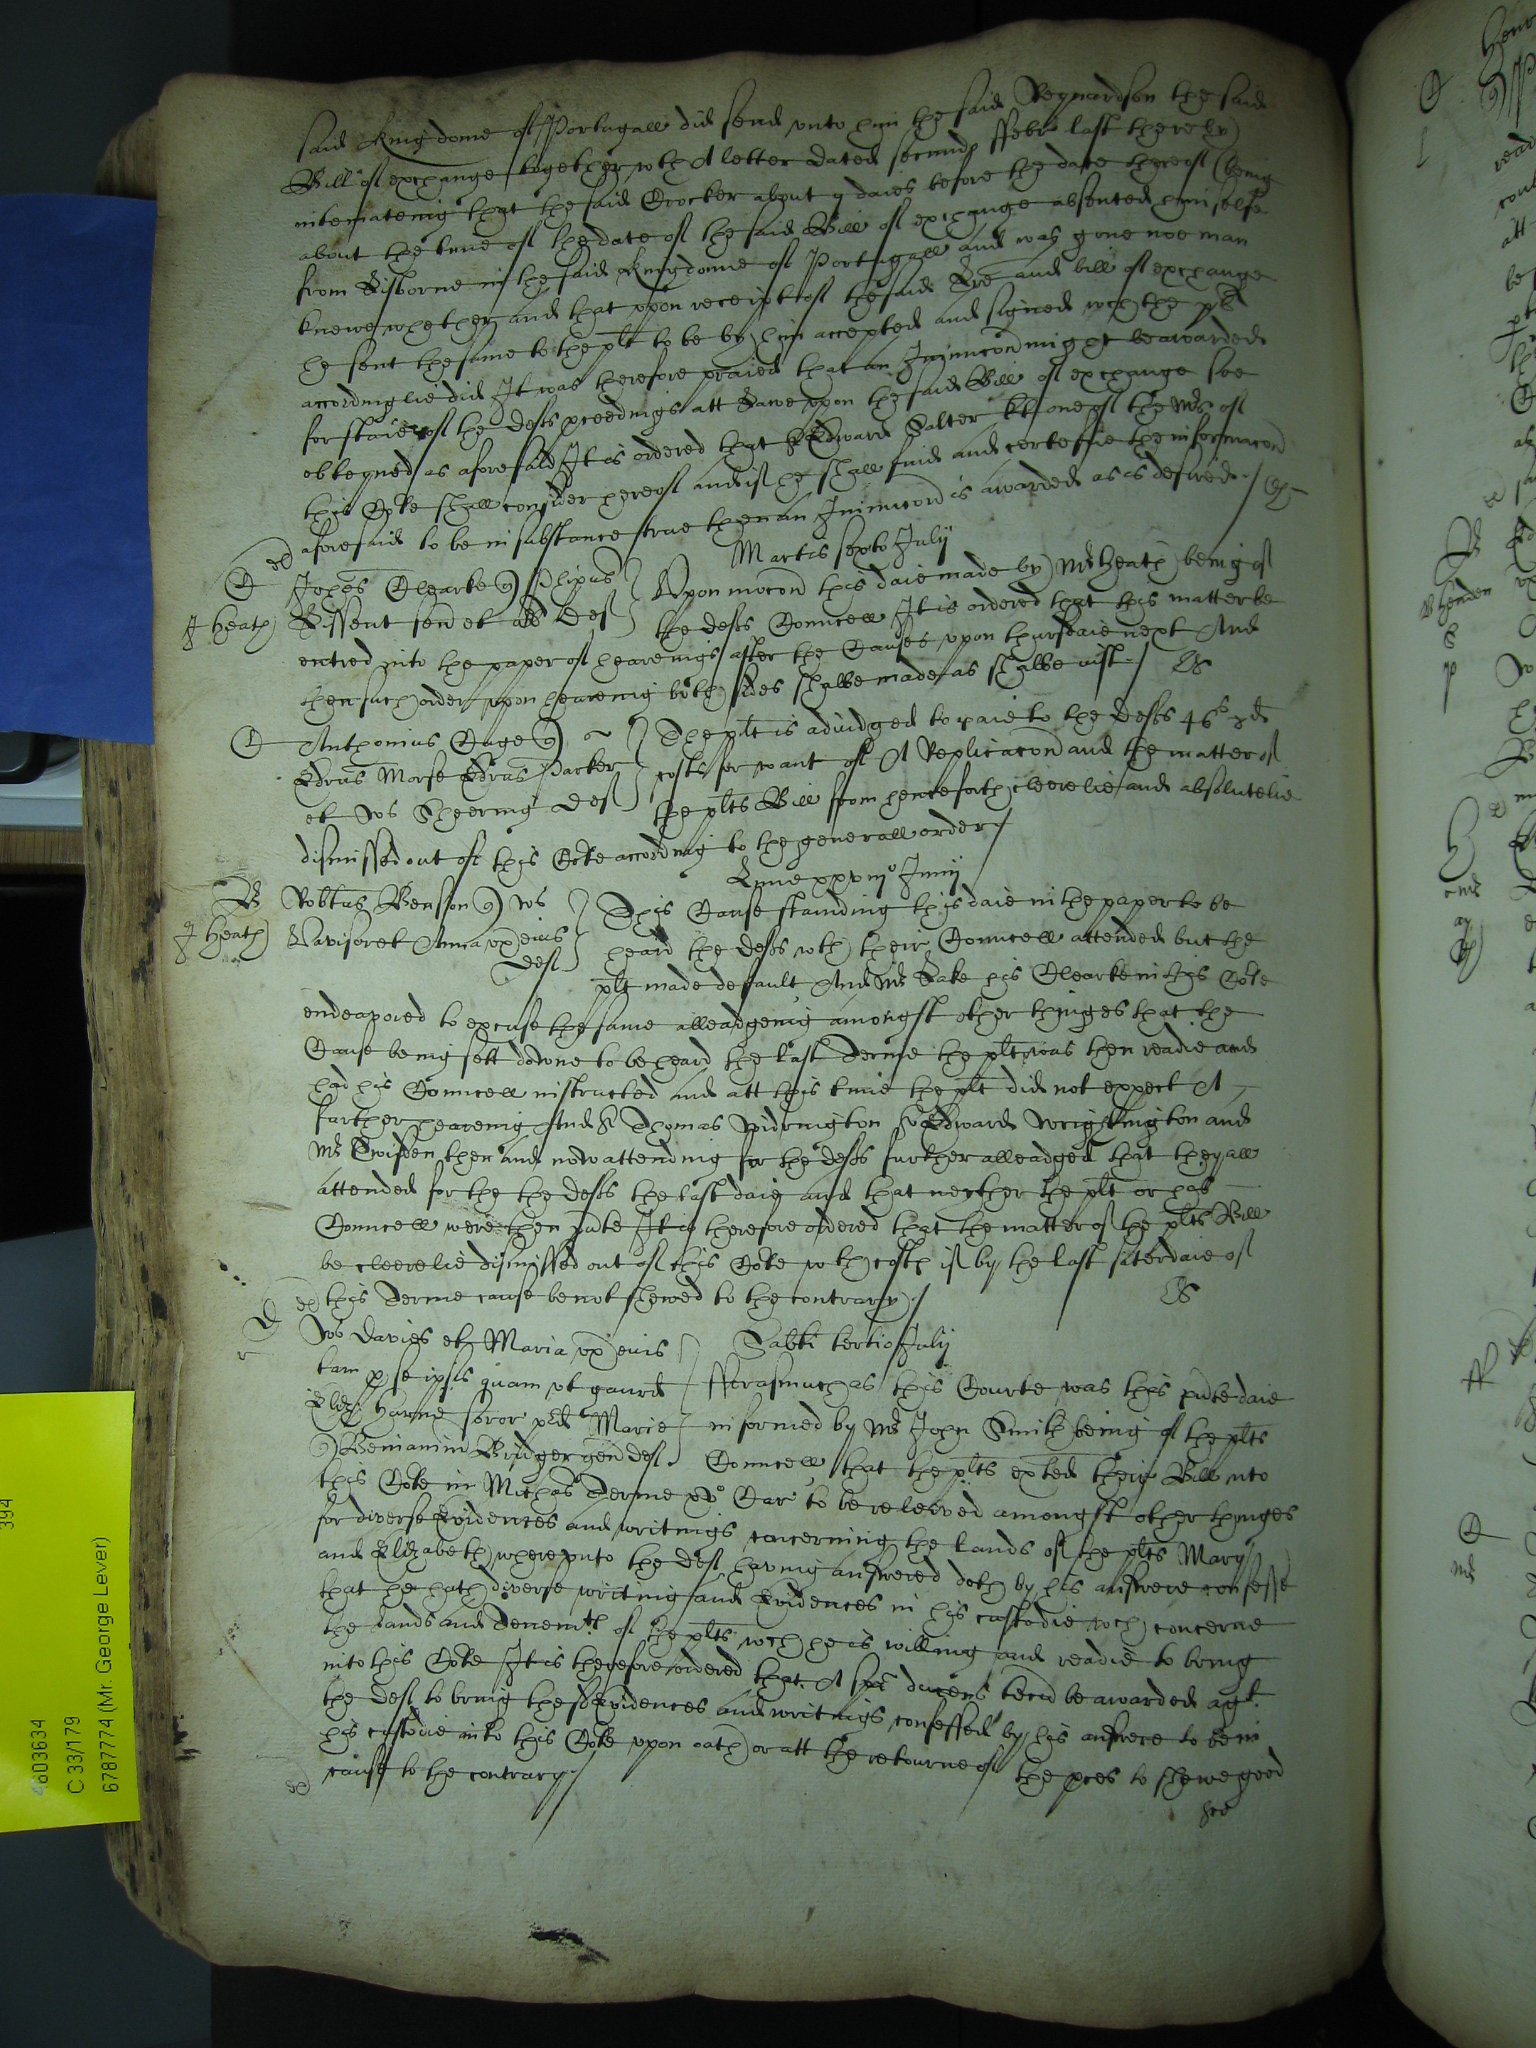 said Kingdome of Portugall did send unto him the said Reynardson the said
Bill of exchange together wth A letter dated secundo ffebr last therely
intematenig that the said Crocker about 9 daies before the date thereof (being
about the time of the date of the said Bill of exchange absented himselfe
from Lisborne in the said Kingdome of Portugall and was gone noe man
knewe whether and that upon receipt of the said Lre and bill of exchange
he sent the same to the plt to be by him accepted and signed wch the plt
accordinglie did It was therefore praied that an Iniuncon might be awarded
for staie of the defts pceedings att Lawe upon the said Bill of exchange soe
obteyned as aforesaid It is ordered that Sr Edward Salter kt one of the Mrs of
this Corte shall consider hereof and if he shall find and certeffie the informacon
aforesaid to be in substance true then an Iniuncon is awarded as is desired
Martis sexto July
C Johes Clearke Plipus
Bissent sen et als def
J Heath
Upon mocon this daie made by Mr Heath being of
the defts Councell It is ordered that this matter be
entred into the paper of hearenigs after the Causes upon thursdaie next And
then such order upon hearenig both sides shalbe made as shalbe iust
C Anthonius Cage
Edrus Morse Edrus Parker
et Ws Sheering def
The plt is adiudged to paie to the defts 46s 8d
costs for want of A Replicacon and the matter of
the plts Bill from henceforth cleerelie and absolutelie
dismissed out of this Corte according to the generall order
Lune xxviijo Junij
B Robtus Benson Ws
J Heath
Navisor et Anna ux eius
def
This Cause standing this daie in the paper to be
heard the defts wth their Councell attended but the
plt made default And Mr Sake his Clearke in this Corte
endeavored to excuse the same alleadgenig amongst other thinges that the
Cause being sett downe to be heard the last Terme the plt was then readie and
had his Councell instructed and att this time the plt did not expect A
further hearenig And Sr Thomas Widrington Sr Edward Wrightington and
Mr Twisden then and now attending for the defts further alleadged that they all
attended for the the defts the last daie and that neither the plt or his
Councell were then pnte It is therefore ordered that the matter of the plts Bill
be cleerelie dismissed out of this Corte wth costs if by the last saterdaie of
this Terme cause be not shewed to the contrary
D Ws Davies et Maria ux eius
tam p se ipsis quam ut gaurd
Eliz Hawne soror pd Marie
Beniamin Bridger gen def
Sabti tertio July
fforasmuch as this Courte was this pnte daie
informed by Mr John Smith being of the plts
Councell that the plts exted their Bill into
this Corte in Michas Terme xvo Car to be releived amongst other thinges
for diverse Evidences and writings concerning the lands of the plts Mary
and Elizabeth whereunto the def having answered doth by his answere confesse
that he hath diverse writing and Evidences in his custodie wch concerne
the lands and Tenemts of the plts wch he is willing and readie to bring
into this Corte It is therefore ordered that A spa ducens tecu be awarded agt
the def to bring these Evidences and writings confessed by his answere to be in
his custodie into this Corte upon oath or att the retourne of the pces to shewe good
cause to the contrary
4603634
C 33/179
6787774 (Mr. George Lever)
394